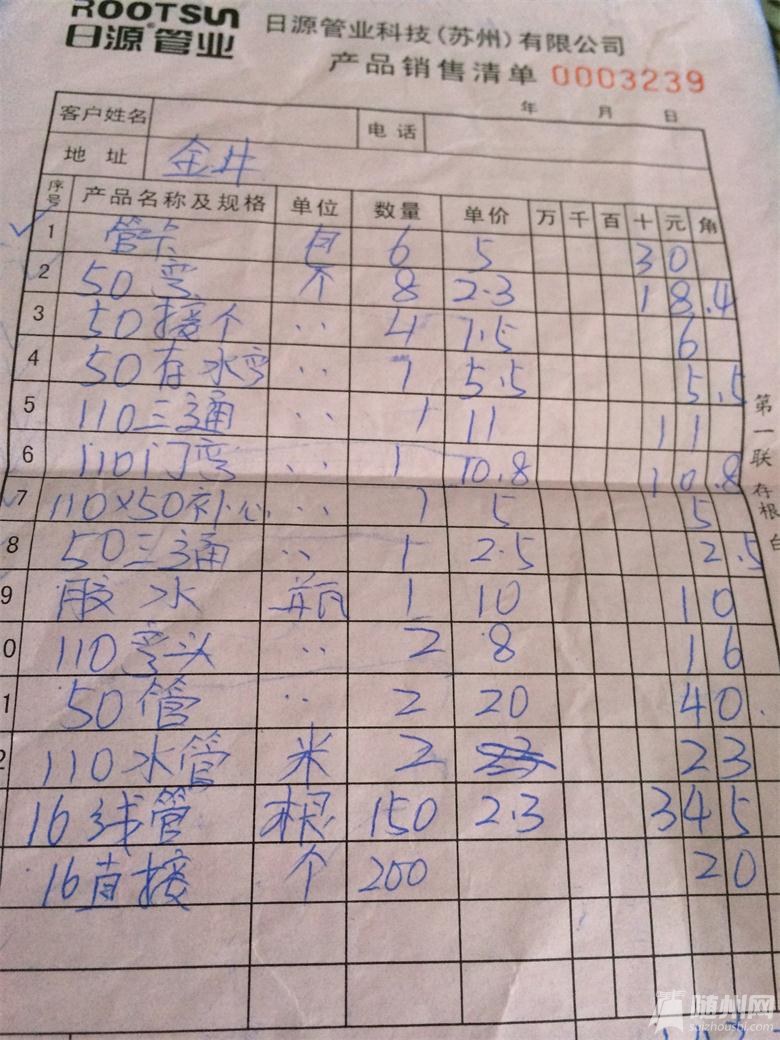 ROOTSUN
日源®管业
日源管业科技(苏州)有限公司
产品销售清单 0003239
年 月 日
客户姓名 电话
地址 金井
序号 产品名称及规格 单位 数量 单价 万 千 百 十 元 角
1 管卡 包 6 5 30
2 50弯 个 8 2.3 18.4
3 50接个 〃 4 1.5 6
4 50存水弯 〃 1 5.5 5.5
5 110三通 〃 1 11 11
6 110门弯 〃 1 10.8 10.8
7 110×50补心 〃 1 5 5
8 50三通 〃 1 2.5 2.5
9 胶水 瓶 1 10 10
0 110弯头 〃 2 8 16
1 50管 〃 2 20 40.
2 110水管 米 2 23
16线管 根 150 2.3 345
16直接 个 200 20
第一联 存根
随州网
suizhoushi.com